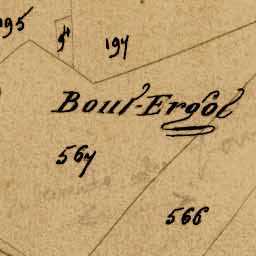 195
197
Bout-Ergol
567
566